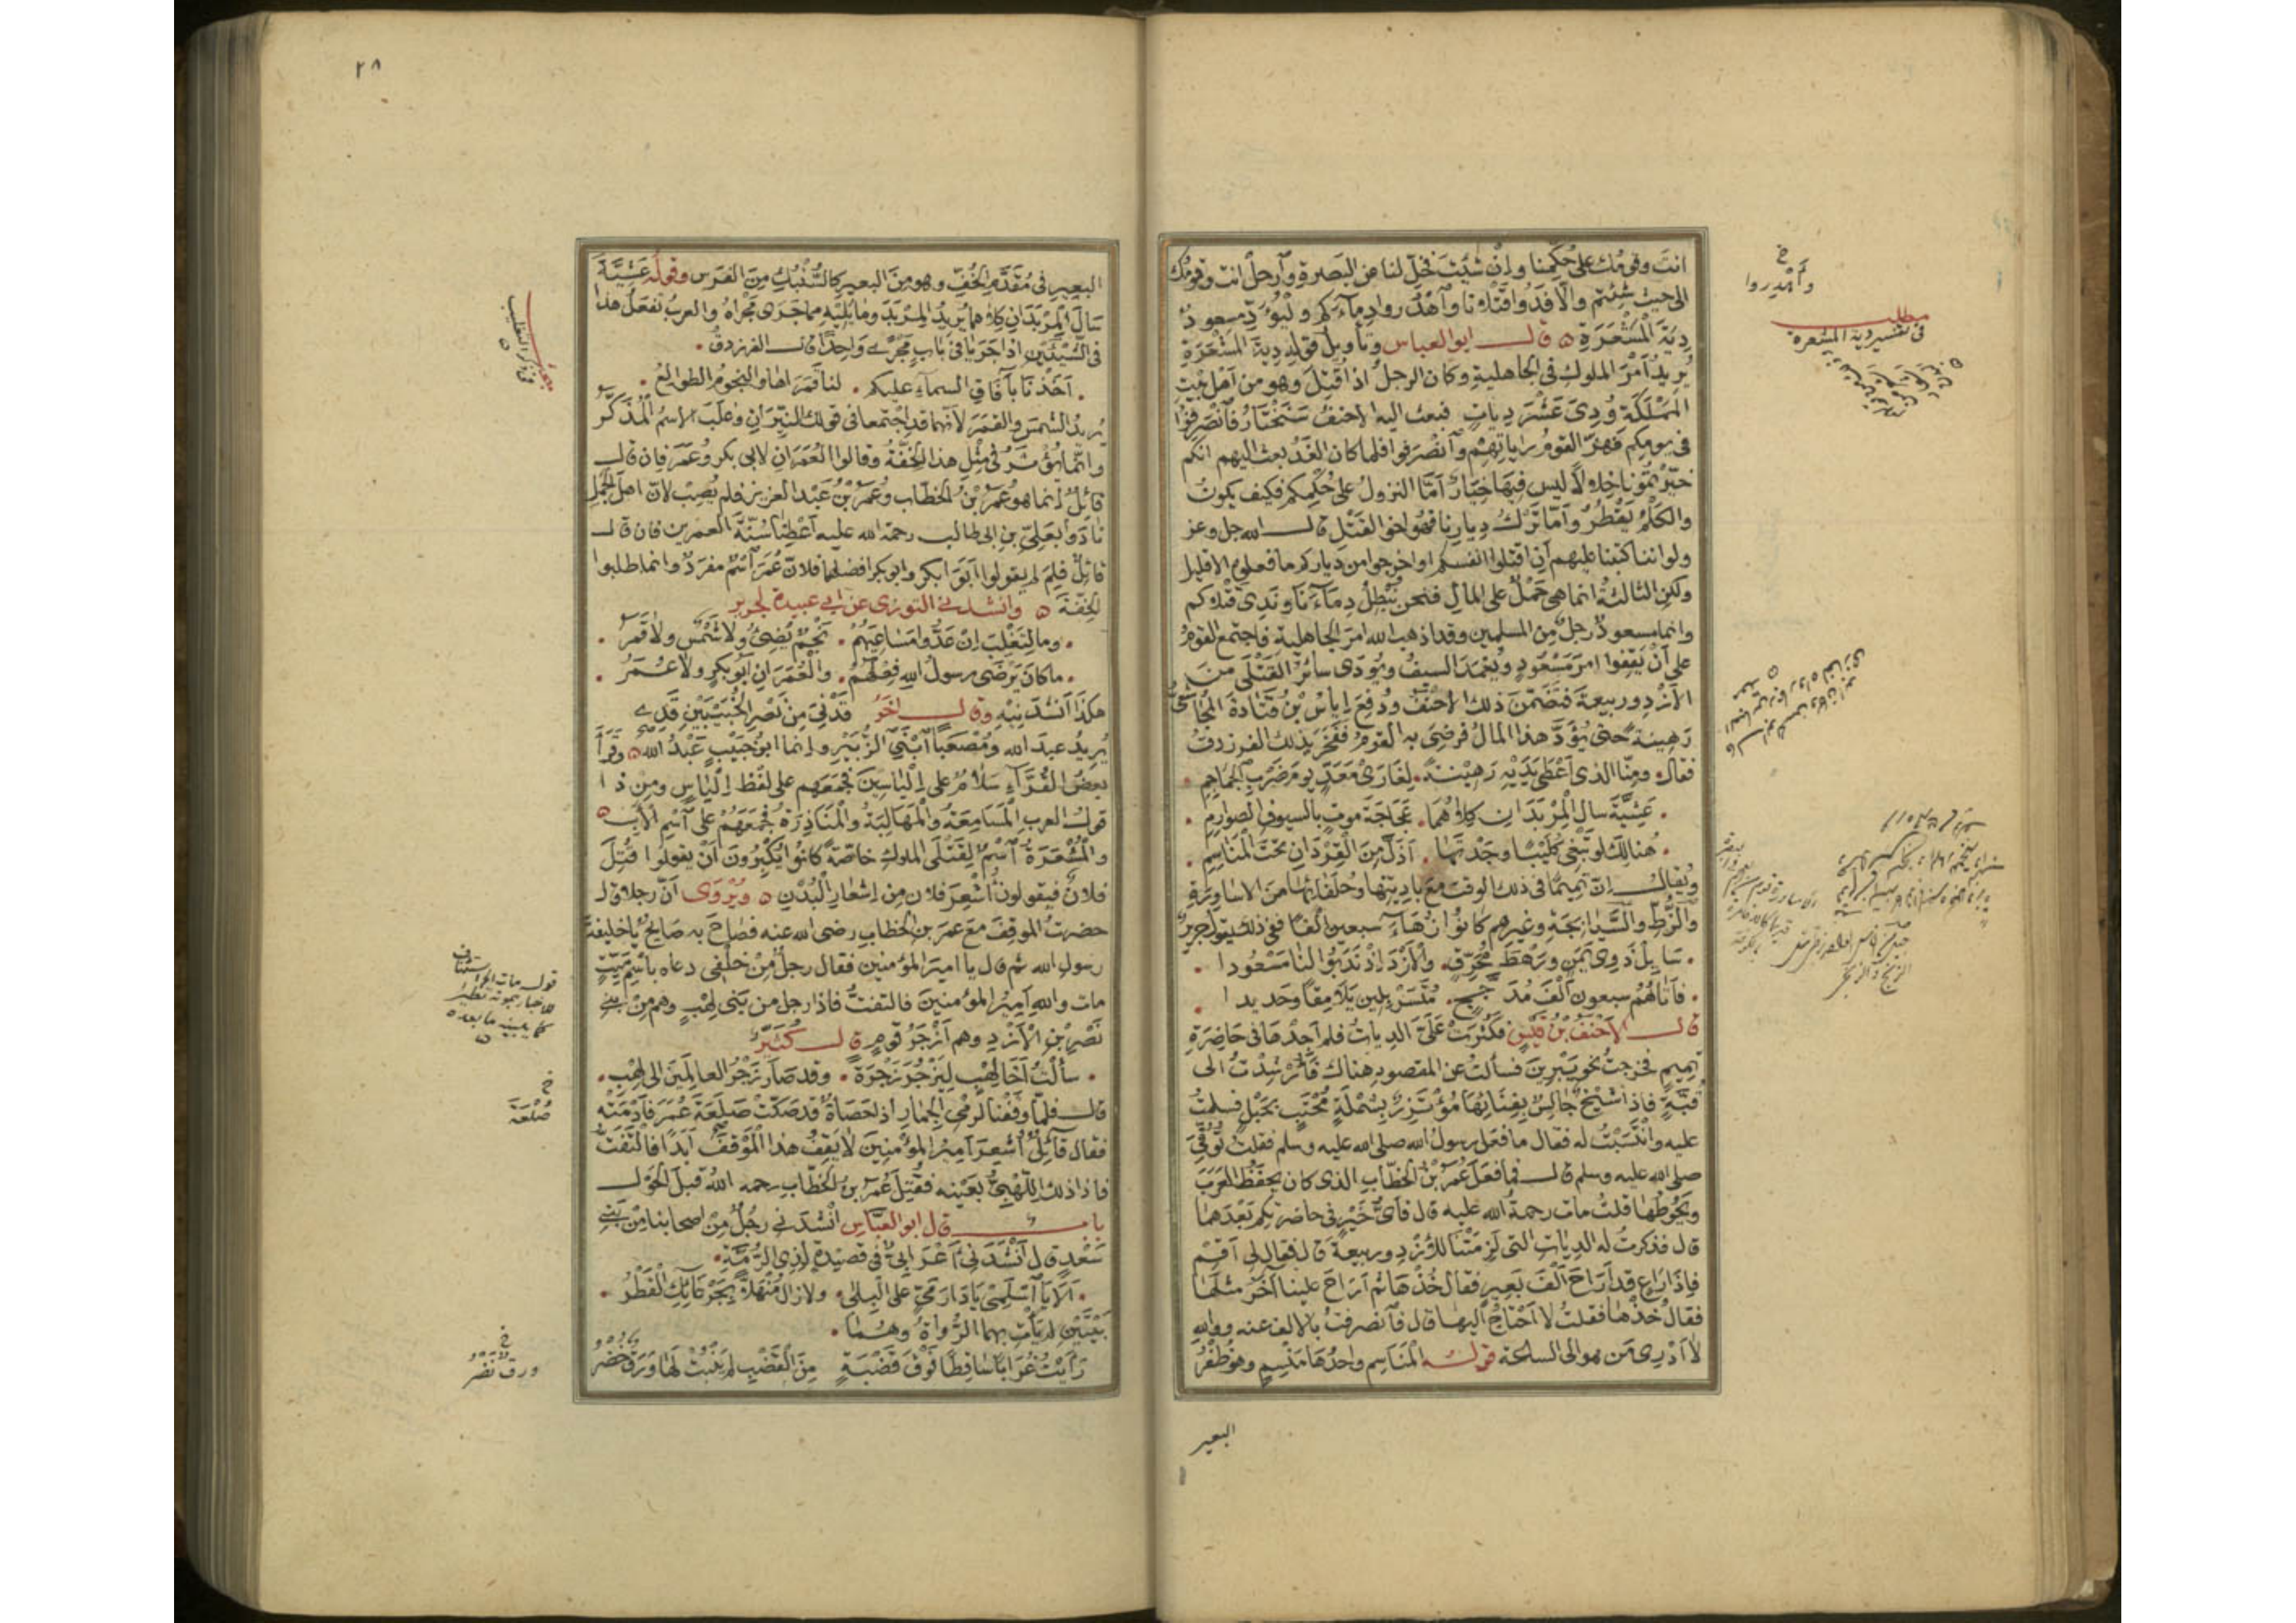 انتَ وقومُك على حُكمِنا وإنْ شئتَ فخَلِّ لنا عن البَصرةِ وارحلْ انت وقومُك
الى حيث شِئتم والّا فَدُوا قتلانا واهْدُروا دِماءَكم وليُودَ مسعودٌ
دِيَةَ المُشْعَرَةِ ه قال ابو العباس وتأويلُ قوله دِيةَ المُشْعَرَةِ
يُريدُ اَمْرَ الملوك في الجاهلية وكان الرجلُ اذا قُتِلَ وهو من اَهلِ بَيْتِ
المَمْلَكَةِ وُدِىَ عَشْرَ دِياتٍ فبعث اليه الاحنفُ سَنَخْتارُ فانْصَرِفُوا
في يومِكم فهَزَّ القومُ راياتِهم وانصَرفوا فلما كان الغَدُ بعث اليهم انكم
خيَّرْتُمُونا خِلالًا ليس فيها خِيارٌ اَمَّا النزولُ على حُكمِكم فكيف يكونُ
والكَلْمُ يَقْطُرُ واَمّا تَرْكُ دِيارِنا فهو اخو القَتْلِ قال الله جل وعز
ولو اننا كتبنا عليهم اَنِ اقتلوا انفسكم او اخرجوا من دياركم ما فعلوه الا قليل
ولكن الثالثةُ انما هي حَمْلٌ على المالِ فنحن نُبْطِلُ دِماءَنا ونَدِى قتلاكم
وانما مسعودٌ رجلٌ من المسلمين وقد اذهب الله امرَ الجاهلية فاجتمع القومُ
على اَنْ يَقِفُوا امرَ مَسْعُودٍ ويُغْمَدَ السيفُ ويُودَى سائرُ القَتْلَى مِنَ
الازدِ وربيعةَ فتضَمَّنَ ذلك الاحنفُ ودُفِعَ اِياسُ بْنُ قَتادةَ المُجاشعىُّ
رَهينةً حتى يُؤدَّى هذا المالُ فرضِىَ به القومُ ففخَر بذلك الفرزدقُ
فقال ومِنّا الذي اَعْطَى يَدَيْهِ رَهينةً . لغارَىْ مَعَدٍّ يومَ ضَرْبِ الجماجم
. عَشيَّةَ سال المِرْبَدانِ كِلاهُما . عَجاجَةَ موتٍ بالسيوفِ الصوارِمِ .
. هُنالِكَ لو تَبْغِى كُلَيْبًا وجَدْتَها . اَذَلَّ مِنَ القِرْدانِ تحتَ المَناسِمِ .
ويُقال اِنّ تَميمًا في ذلك الوقت مع بادِيتِها وحُلفائِها من الاساوِرةِ
والزُّطِّ والسَّيابِجةِ وغيرهم كانُوا زُهاءَ سبعين اَلفًا ففي ذلك يقول جريرٌ
. سَايِلْ ذَوى يَمَنٍ ورَهْطَ مُحَرِّقٍ . والاَزْدَ اِذ نَدَبُوا لنا مَسْعُودا .
. فاَتاهُمُ سبعون اَلْفَ مُدَجَّجٍ . مُتَسَرْبِلين يَلامِقًا وحديدا .
قال الاَحْنَفُ بْنُ قَيْسٍ فكَثُرَتْ عَلَىَّ الدِياتُ فلم اَجِدْها في حَاضِرَةِ
تميمٍ فخرجتُ نحو يَبْرِينَ فسألتُ عن المقصود هناك فاُرشِدْتُ الى
قُبَّةٍ فاذا شيخٌ جالسٌ بفِنائِها مُؤتَزِرٌ بشَمْلَةٍ مُحْتَبٍ بحَبْلٍ فسلمتُ
عليه وانْتَسَبْتُ له فقال ما فعَل رسولُ الله صلى الله عليه وسلم فقلت تُوفِّىَ
صلى الله عليه وسلم قال فما فعَلَ عُمَرُ بْنُ الخطّابِ الذي كان يحفَظُ العَرَبَ
ويَحُوطُها قلتُ مات رحمةُ الله عليه قال فاَىُّ خَيْرٍ في حاضرتِكم بَعْدَهُما
قال فذكرتُ له الدِياتِ التي لَزِمَتْنا للاَزْدِ وربيعةَ قال فقال لي اَقِمْ
فاِذا راعٍ قد اَراحَ اَلْفَ بَعيرٍ فقال خُذْها ثم اَراحَ علينا آخَرُ مثلَها
فقال خُذْها فقلتُ لا اَحتاجُ اليها قال فانصرفتُ بالالفِ عنه وواللهِ
لا اَدْرِى مَن هو الى الساعة قوله المَناسِم واحدُها مَنْسِمٌ وهو ظُفْرُ
البعير
خ
واهْدِروا
مطلب
في تفسير دية المشعرة
٢٨
البعيرِ في مُقدَّمِ الخُفِّ وهو من البعير كالسُّنْبُكِ مِن الفَرَسِ وقوله عَشيَّةَ
سَالَ المِرْبَدانِ كِلاهُما يُريدُ المِرْبَدَ وما يَلِيهِ مما جَرَى مَجْراهُ والعربُ تَفعَلُ هذا
في الشَّيْئَيْنِ اذا جَرَيا في بابٍ مَجْرًى واحِدًا قال الفرزدقُ .
. اَخَذْنا بآفاقِ السماءِ عليكم . لنا قَمَراها والنجومُ الطوالعُ .
يُريدُ الشمسَ والقمَرَ لانّهما قد اجتمعا في قولك النَيِّرانِ وغلَّبَ الاسمَ المُذكَّرَ
وانّما يُؤثَرُ في مِثْلِ هذا الخِفَّةُ وقالوا العُمَرانِ لابى بكر وعُمَرَ فان قال
قائلٌ اِنما هو عُمَرُ بْنُ الخطّابِ وعُمَرُ بْنُ عَبْدِ العزيز فلم يُصِبْ لانّ اهلَ الجَمَلِ
نادَوْا بعَلىِّ بنِ ابى طالب رحمة الله عليه اَعْطِنا سُنَّةَ العمرين فان قال
قائلٌ فلِمَ لم يقولوا اَبَوَا بكرٍ وابو بكرٍ افضلُهما فلانّ عُمَرَ اسمٌ مفرَدٌ وانما طلبوا
الخِفَّةَ ه وانشدنى التوزى عن ابى عبيدة لجرير
. وما لِتَغْلِبَ اِنْ عَدُّوا مَساعِيَهُمْ . نَجْمٌ يُضِىُء ولا شَمْسٌ ولا قَمَرُ .
. ما كانَ يَرْضَى رسولُ اللهِ فِعْلَهُمُ . والعُمَرانِ اَبُو بكرٍ ولا عُمَرُ .
هكذا اَنشدَنيهِ وقال آخَرُ قَدْنِىَ مِنْ نَصْرِ الخُبَيْبَيْنِ قَدِى
يُريدُ عبدَ الله ومُصْعَبًا ابْنَىِ الزُّبَيْرِ وانما ابو خُبَيْبٍ عَبْدُ الله ه وقرأ
بعضُ القُرّاءِ سَلامٌ على اِلْياسِينَ فجمَعَهم على لفظِ اِلْياسٍ ومِن ذا
قولُ العربِ المَسامِعَةُ والمَهالِبَةُ والمَناذِرَةُ فجمَعَهُمْ على اسمِ الابِ ه
والمُشْعَرَةُ اسْمٌ لِقَتْلَى الملوكِ خاصّةً كانُوا يُكْبِرُونَ اَنْ يقولوا قُتِلَ
فلانٌ فيقولون اُشْعِرَ فلان مِن اِشعارِ البُدْنِ ه ويُرْوَى اَنّ رجلًا قال
حضرتُ الموقِفَ مع عمرَ بن الخطاب رضى الله عنه فصاحَ به صايِحٌ يا خليفةَ
رسولِ الله ثم قال يا اميرَ المؤمنين فقال رجلٌ مِنْ خلْفى دعاه باسْمِ مَيِّتٍ
مات واللهِ اَميرُ المؤمنينَ فالتفتُّ فاذا رجل من بَنى لِهْبٍ وهم مِنْ بَنى
نَصْرِ بنِ الاَزْدِ وهم اَزْجَرُ قومٍ قال كُثَيِّرٌ
. سألتُ اَخا لِهْبٍ لِيَزْجُرَ زَجْرَةً . وقد صَارَ زَجْرُ العالَمينَ الى لِهْبِ .
قال فلمّا وقَفْنا لرَمْىِ الجِمارِ اذا حَصاةٌ قد صَكَّتْ صَلَعَةَ عُمَرَ فاَدْمَتْهُ
فقال قائلٌ اُشْعِرَ اَميرُ المؤمنينَ لا يَقِفُ هذا المَوْقِفَ اَبَدًا فالتَفَتُّ
فاذا ذلك اللِّهْبِىُّ بعَيْنِه فقُتِلَ عُمَرُ بنُ الخَطّابِ رحمه اللهُ قبلَ الحَوْلِ
باب قال ابو العبّاس انشدَنى رجُلٌ مِنْ اصحابِنا مِنْ بَنى
سَعْدٍ قال اَنْشَدَنى اَعْرَابِىٌّ في قصيدةٍ لِذى الرُّمَّةِ .
. اَلا يا اسْلَمِى يا دَارَ مَىٍّ على البِلى . ولا زال مُنْهَلًّا بِجَرْعائِكِ القَطْرُ .
بَيْتَيْنِ لم يأتِ بهما الرُّواةُ وهُما .
رَاَيْتُ غُرابًا سَاقِطًا فَوْقَ قَضْبَةٍ مِنَ القَضْبِ لم يَنْبُتْ لَها وَرَقٌ خُضْرُ
خ
صُلْعَةَ
خ
ورقٌ نَضْرُ